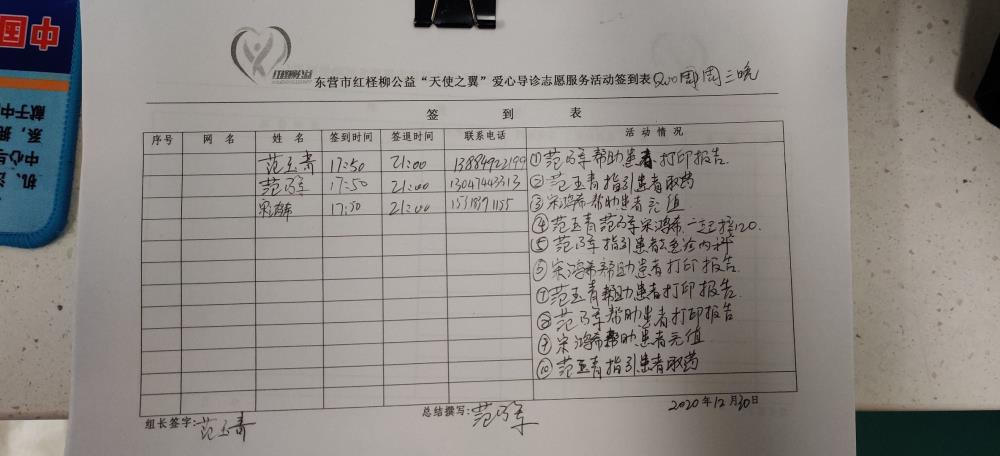 中国
红柽柳公益
东营市红柽柳公益“天使之翼”爱心导诊志愿服务活动签到表 周三晚
签 到 表
序号 网 名 姓 名 签到时间 签退时间 联系电话 活 动 情 况
范玉青 17:50 21:00 13884922199 ①范乃军帮助患者打印报告
17:50 21:00 13047443313 ②范玉青指引患者取药
宋鸿希 17:50 21:00 ③宋鸿希帮助患者充值
④范玉青范乃军宋鸿希一起接120.
⑤范乃军指引患者急诊内科
⑥宋鸿希帮助患者打印报告
⑦范玉青帮助患者打印报告
⑧范乃军帮助患者打印报告
⑨宋鸿希帮助患者充值
⑩范玉青指引患者取药
组长签字:范玉青 总结撰写:范乃军 2020年12月30日